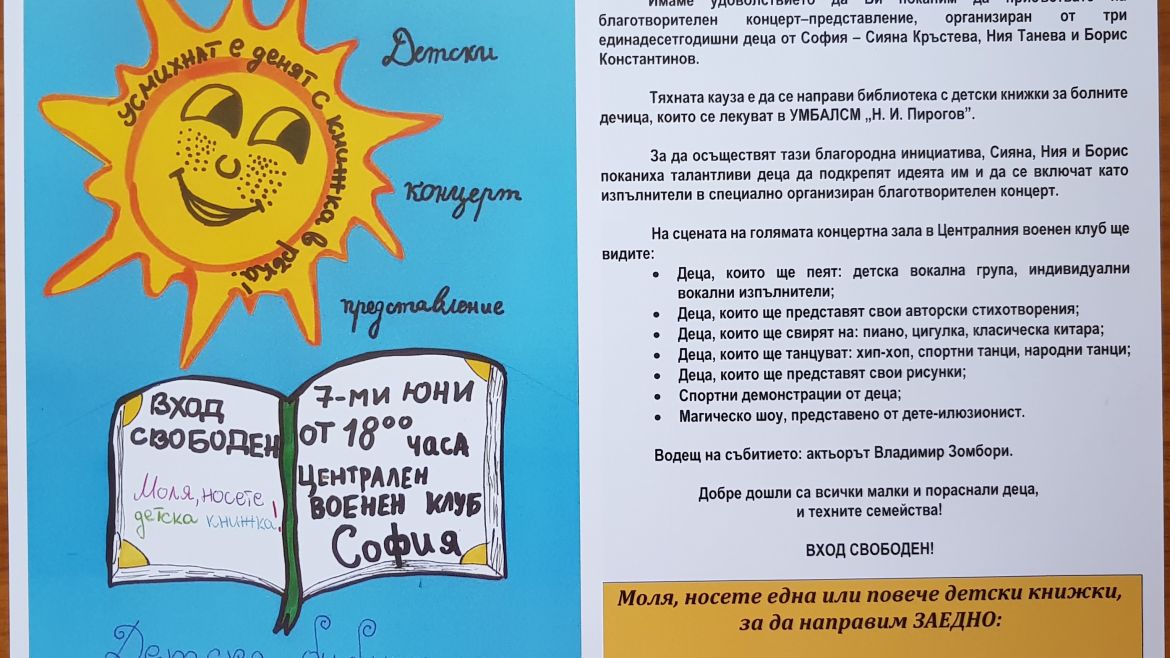 УСМИХНАТ Е ДЕНЯТ С КНИЖКА В РЪКА!
Детски
концерт
представление
ВХОД
СВОБОДЕН
Моля, носете
детска книжка!
7-МИ ЮНИ
ОТ 18⁰⁰ ЧАСА
ЦЕНТРАЛЕН
ВОЕНЕН КЛУБ
София
Детска
Имаме удоволствието да Ви поканим да присъствате на
благотворителен концерт–представление, организиран от три
единадесетгодишни деца от София – Сияна Кръстева, Ния Танева и Борис
Константинов.
Тяхната кауза е да се направи библиотека с детски книжки за болните
дечица, които се лекуват в УМБАЛСМ „Н. И. Пирогов”.
За да осъществят тази благородна инициатива, Сияна, Ния и Борис
поканиха талантливи деца да подкрепят идеята им и да се включат като
изпълнители в специално организиран благотворителен концерт.
На сцената на голямата концертна зала в Централния военен клуб ще
видите:
• Деца, които ще пеят: детска вокална група, индивидуални
вокални изпълнители;
• Деца, които ще представят свои авторски стихотворения;
• Деца, които ще свирят на: пиано, цигулка, класическа китара;
• Деца, които ще танцуват: хип-хоп, спортни танци, народни танци;
• Деца, които ще представят свои рисунки;
• Спортни демонстрации от деца;
• Магическо шоу, представено от дете-илюзионист.
Водещ на събитието: актьорът Владимир Зомбори.
Добре дошли са всички малки и пораснали деца,
и техните семейства!
ВХОД СВОБОДЕН!
Моля, носете една или повече детски книжки,
за да направим ЗАЕДНО: